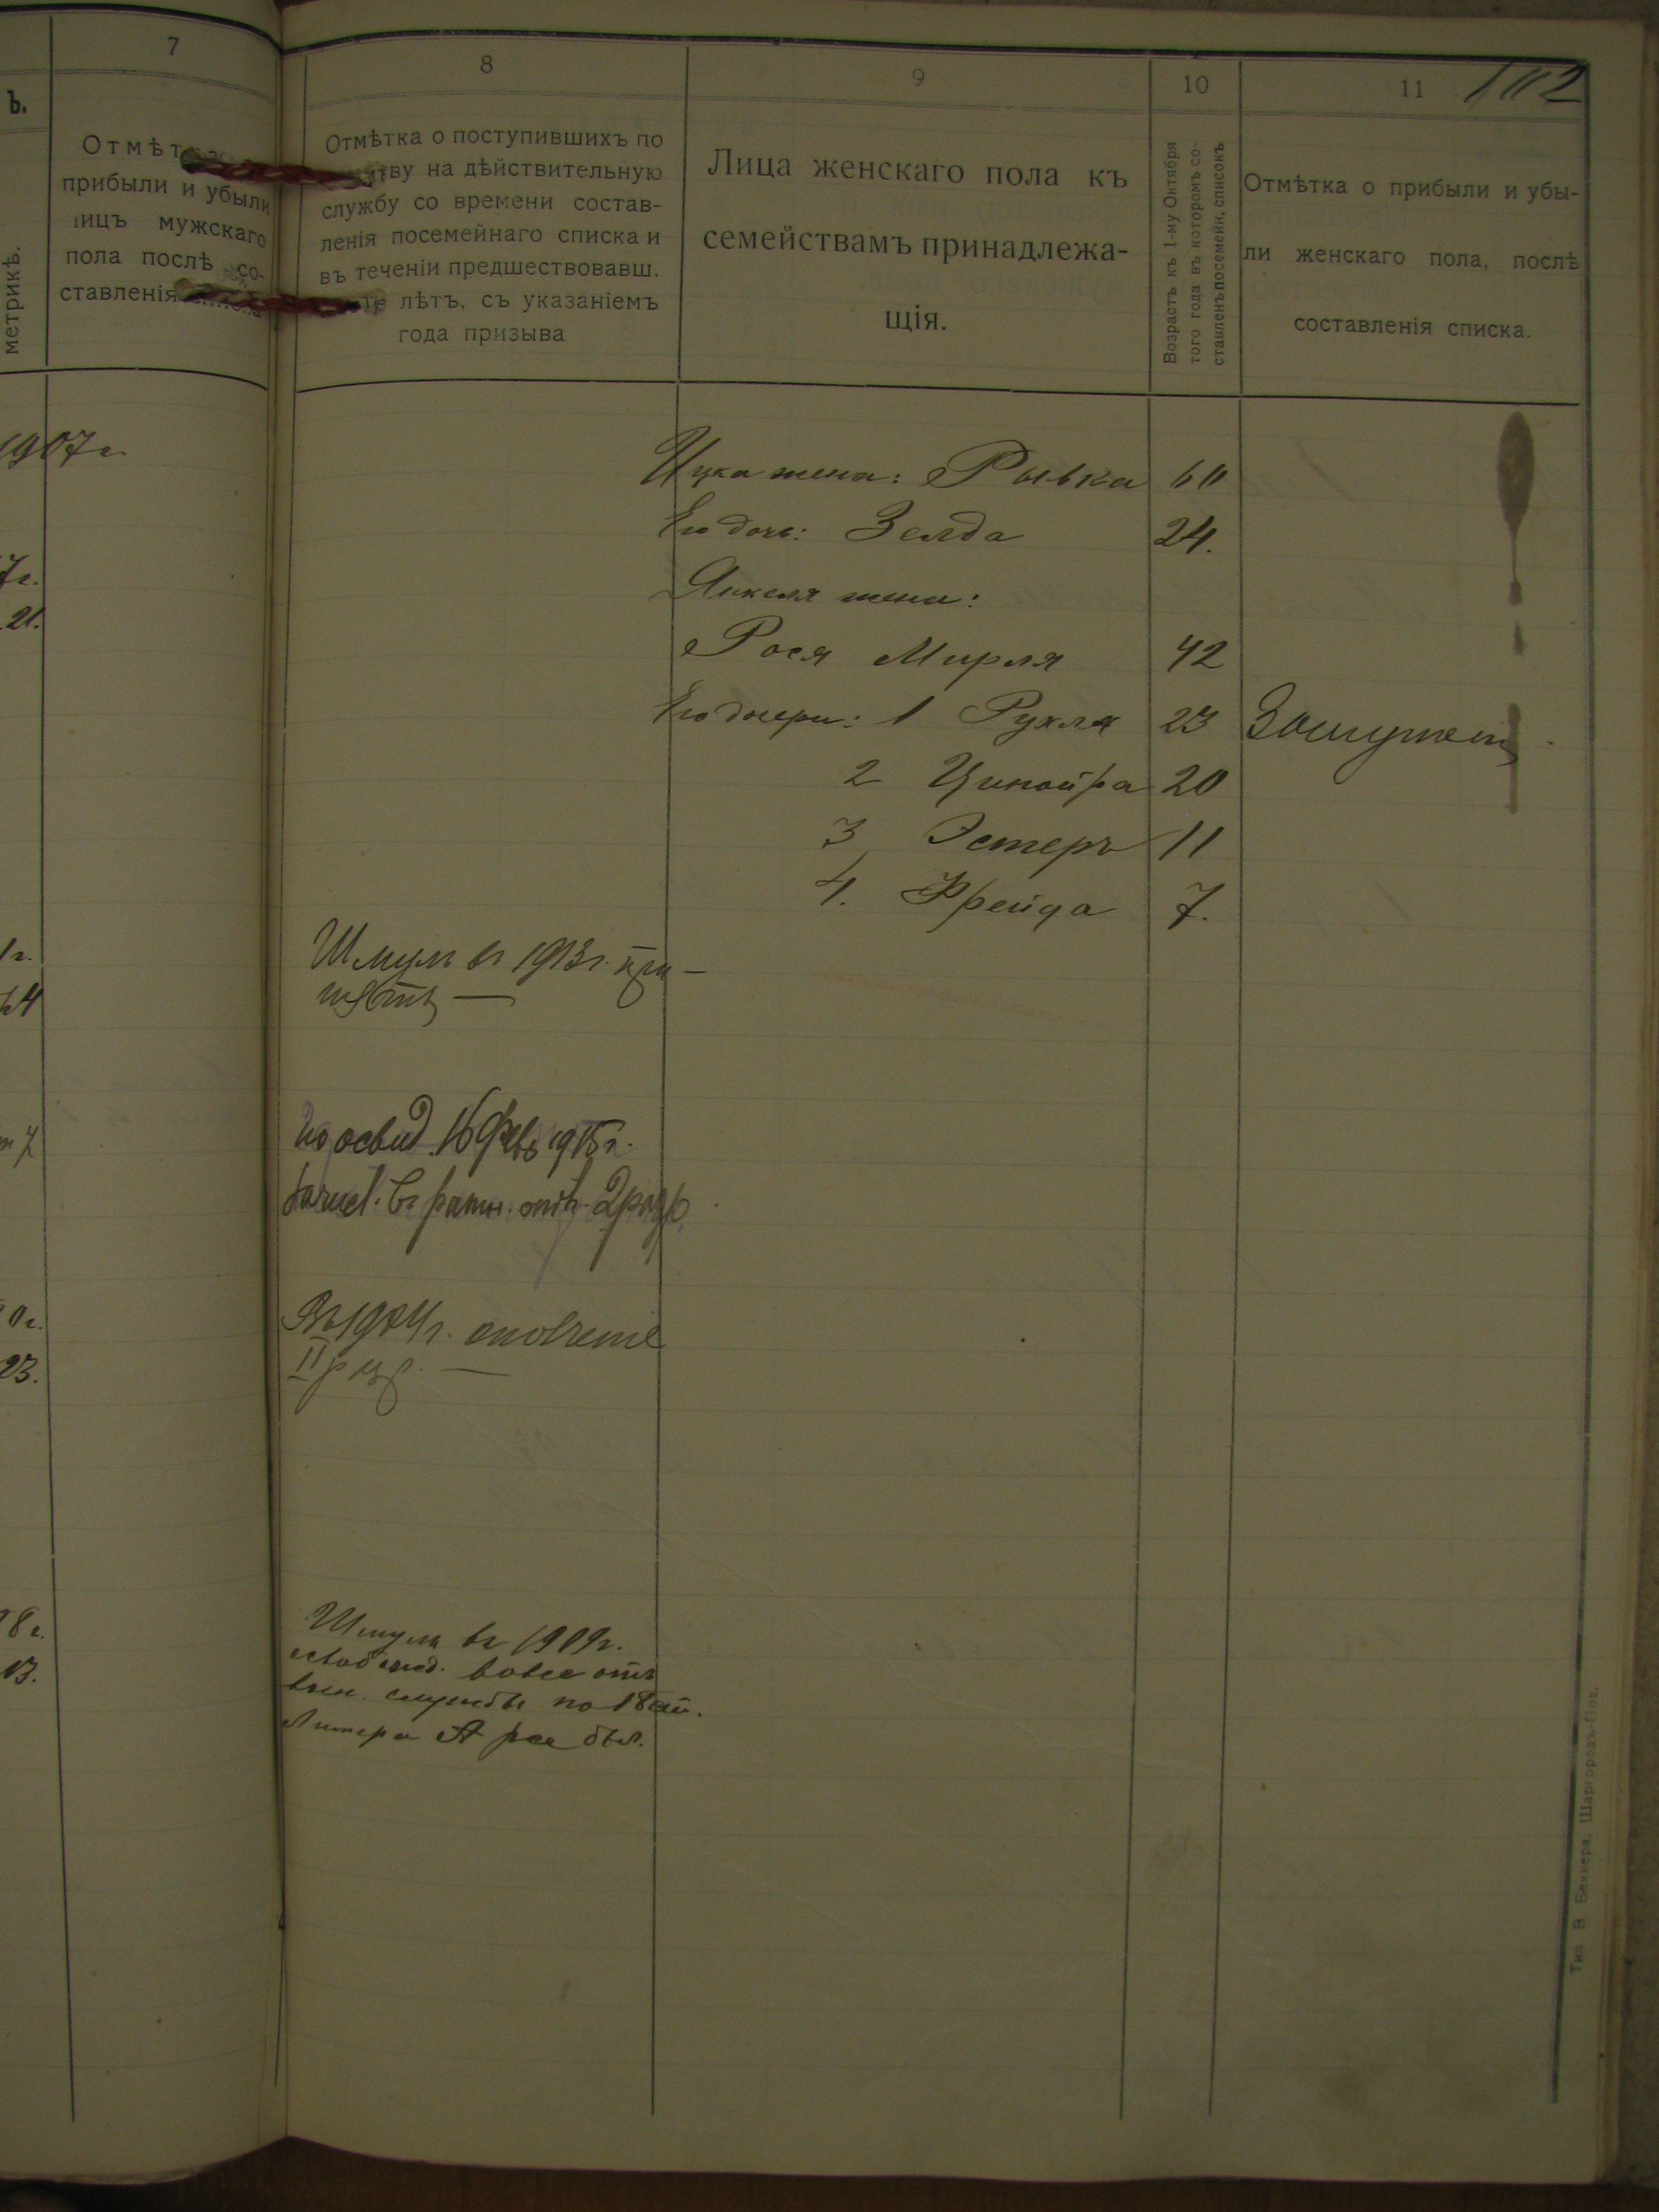 7
ъ.
Отмѣт
прибыли и убыли
лицъ мужскаго
пола послѣ со-
ставленія списка
метрикѣ.
1907 г.
7г.
21.
1г.
24
0г.
23.
8г.
13.
8
Отмѣтка о поступившихъ по
тву на дѣйствительную
службу со времени состав-
ленія посемейнаго списка и
въ теченіи предшествовавш.
лѣтъ, съ указаніемъ
года призыва
9
Лица женскаго пола къ
семействамъ принадлежа-
щія.
10
Возрастъ къ 1-му Октября
того года въ которомъ со-
ставленъ посемейн. списокъ
11
102
Отмѣтка о прибыли и убы-
ли женскаго пола, послѣ
составленія списка.
Ицка жена: Рывка 60
Его дочь: Зелда 24.
Янкеля жена:
Рося Мирля 42
Его дочери: 1 Рухля 23 Замужем
2 Ципойра 20
3 Эстеръ 11
4. Фрейда 7.
Шмуль въ 1913 г. при-
нятъ —
по освид. 16 Фев 1915 г.
зачисл. въ ратн. опол. 2 разр.
Въ 1904 г. ополченіе
II разр. —
Шмуль въ 1909 г.
освобожд. вовсе отъ
воен. службы по 18 ст.
Литера А рос бол.
Тип. В Беккера, Шаргородъ-Под.